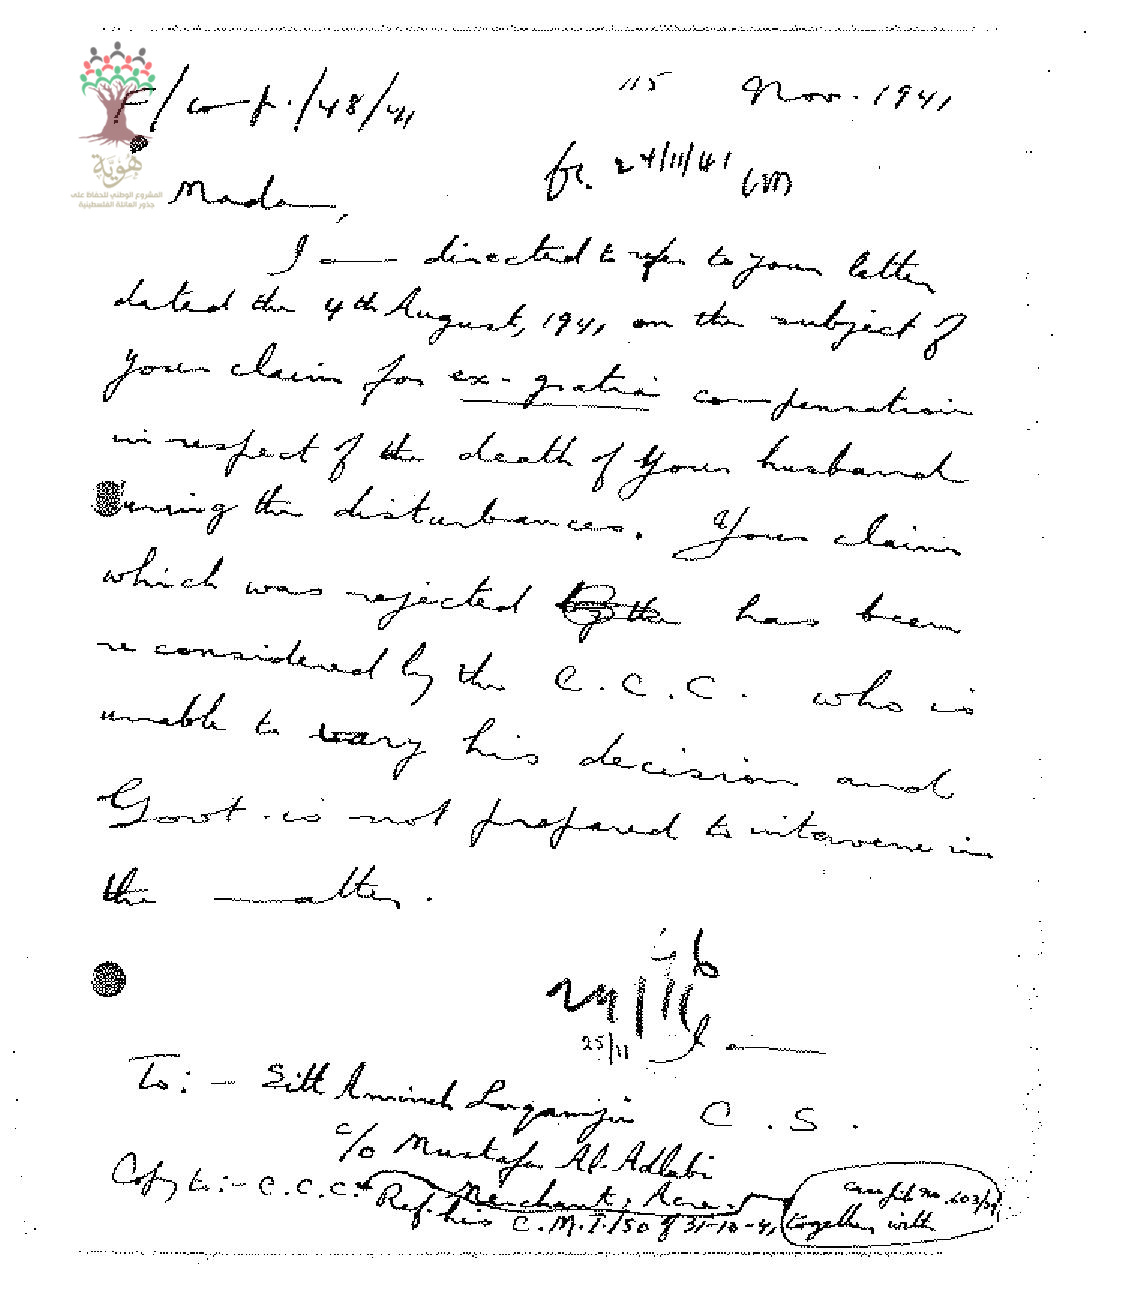 F/Comp./48/41
Nov. 1941
fr. 24/11/41
هُوِيَّة
المشروع الوطني للحفاظ على
جذور العائلة الفلسطينية
Madam,
I am directed to refer to your letter
dated the 4th August, 1941 on the subject of
your claim for ex-gratia compensation
in respect of the death of your husband
during the disturbances. Your claim
which was rejected by the has been
reconsidered by the C.C.C. who is
unable to vary his decision and
Govt. is not prepared to intervene in
the matter.
24/11
25/11
I am
To:- Sitt Amineh
C.S.
c/o Mustafa Al-Adlabi
Merchant, Acre
Copy to:- C.C.C. Ref. his C.M.T./50 of 31-10-41 together with